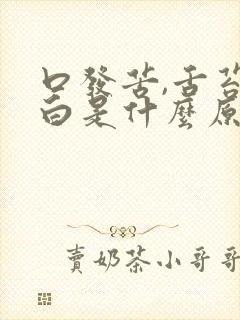 口發苦,舌苔
白是什麼原
賣奶茶小哥哥